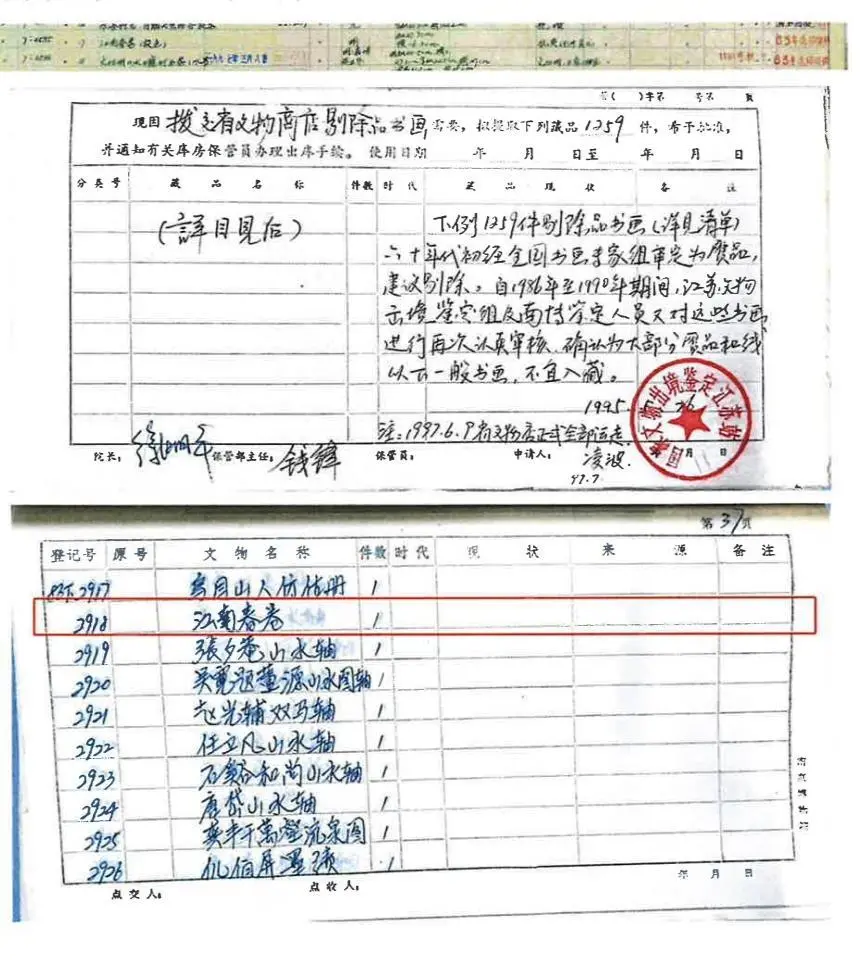 字( )字第 号第 页
现因 拨交省文物商店剔除品书画 需要，拟提取下列藏品 1259 件，希予批准，
并通知有关库房保管员办理出库手续。 使用日期 年 月 日至 年 月 日
分类号 藏品名称 件数 时代 藏品现状 备注
(詳目見后)
下例1259件剔除品书画(详见清单)
六十年代初经全国书画专家组审定为赝品，
建议剔除。自1986年至1990年期间，江苏文物
出境鉴定组及南博鉴定人员又对这些书画
进行再次认真审核，确认为大部分赝品和线
以下一般书画，不宜入藏。
1995
注：1997.6.9 省文物店正式全部运走
院长： 徐湖平 保管部主任： 钱锋 保管员： 申请人： 凌波
97.7.
文物出境鉴定江苏站
第37页
登记号 原号 文物名称 件数 时代 现状 来源 备注
2917 1
2918 江南春卷 1
2919 張夕菴山水轴 1
2920 吴寬题董源山水图轴 1
2921 赵光辅双马轴 1
2922 任立凡山水轴 1
2923 石谿和尚山水轴 1
2924 唐岱山水轴 1
2925 千萬壑流泉图 1
2926 仇伯屏墨 1
点交人： 点收人： 年 月 日